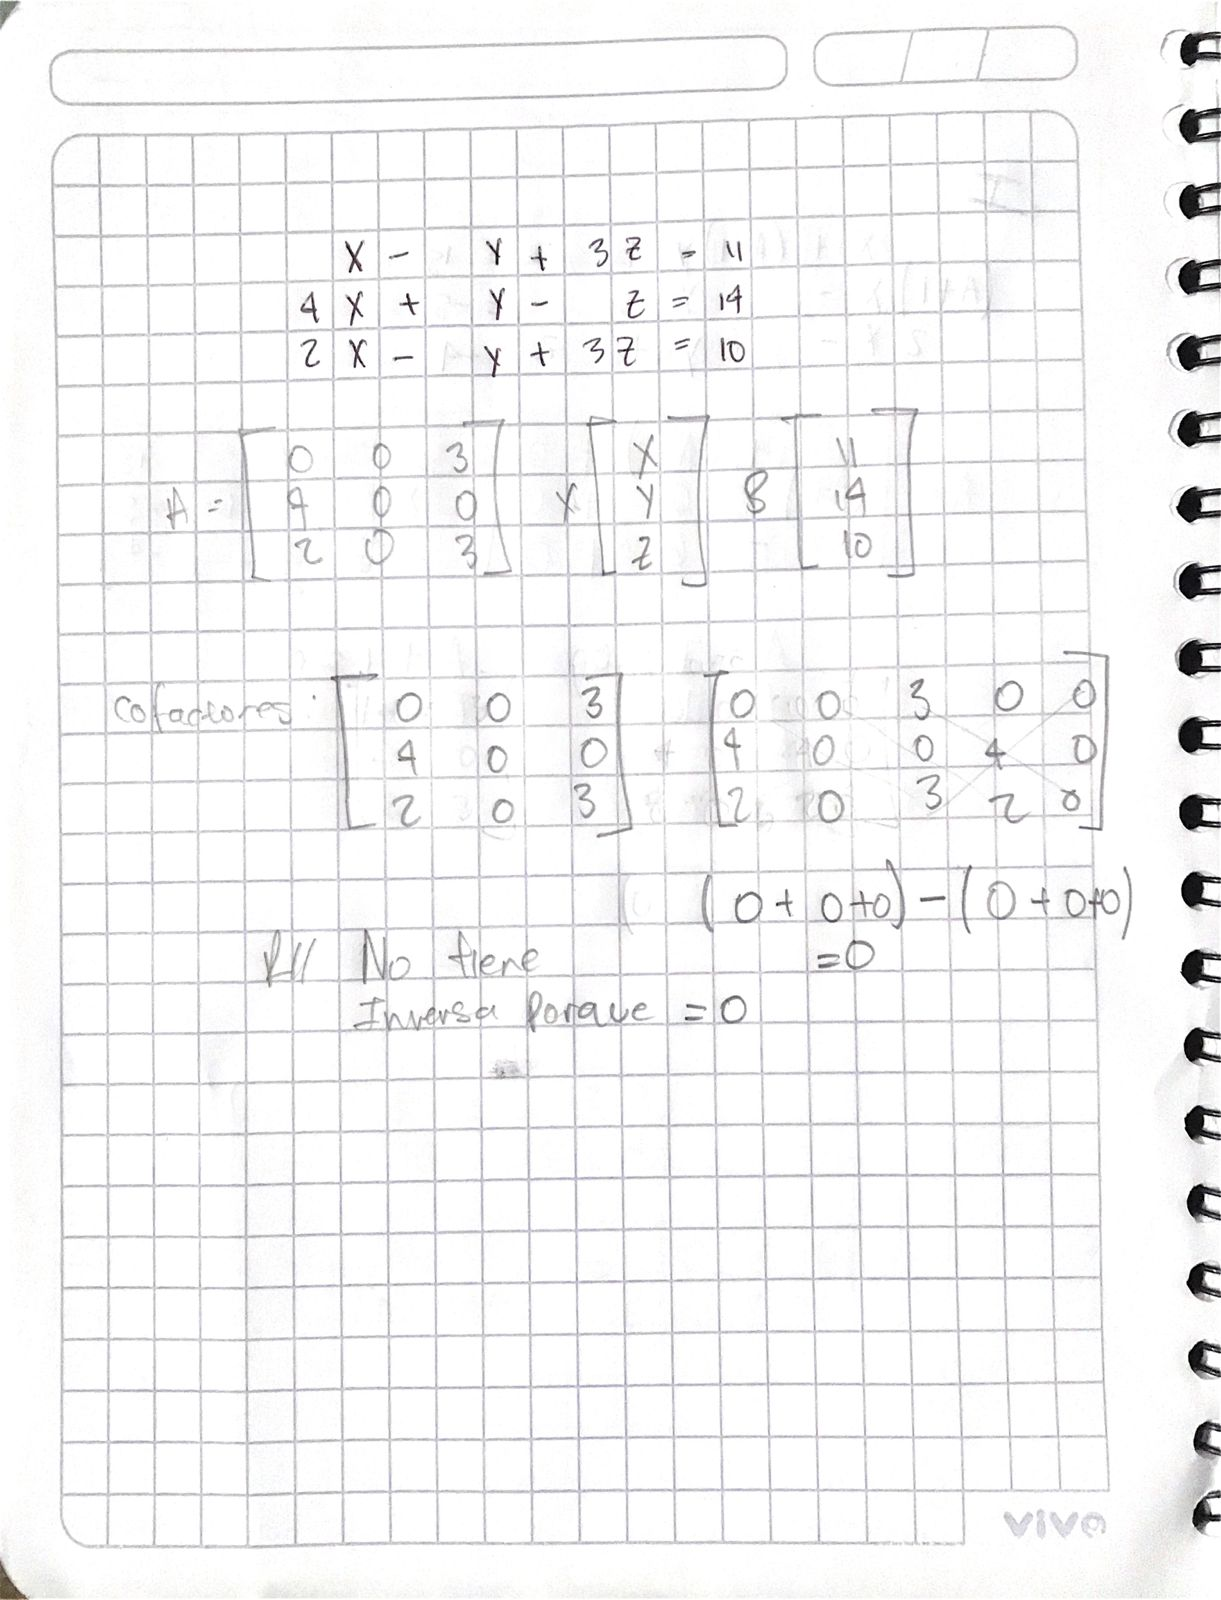 X - Y + 3Z = 11
4X + Y - Z = 14
2X - Y + 3Z = 10
A = [ 0 0 3 ] X [ X ] B [ 11 ]
[ 4 0 0 ] [ Y ] [ 14 ]
[ 2 0 3 ] [ Z ] [ 10 ]
Cofactores: [ 0 0 3 ] [ 0 0 3 0 0 ]
[ 4 0 0 ] [ 4 0 0 4 0 ]
[ 2 0 3 ] [ 2 0 3 2 0 ]
(0 + 0+0) - (0 + 0+0)
= 0
R// No tiene
Inversa Porque = 0
vivo